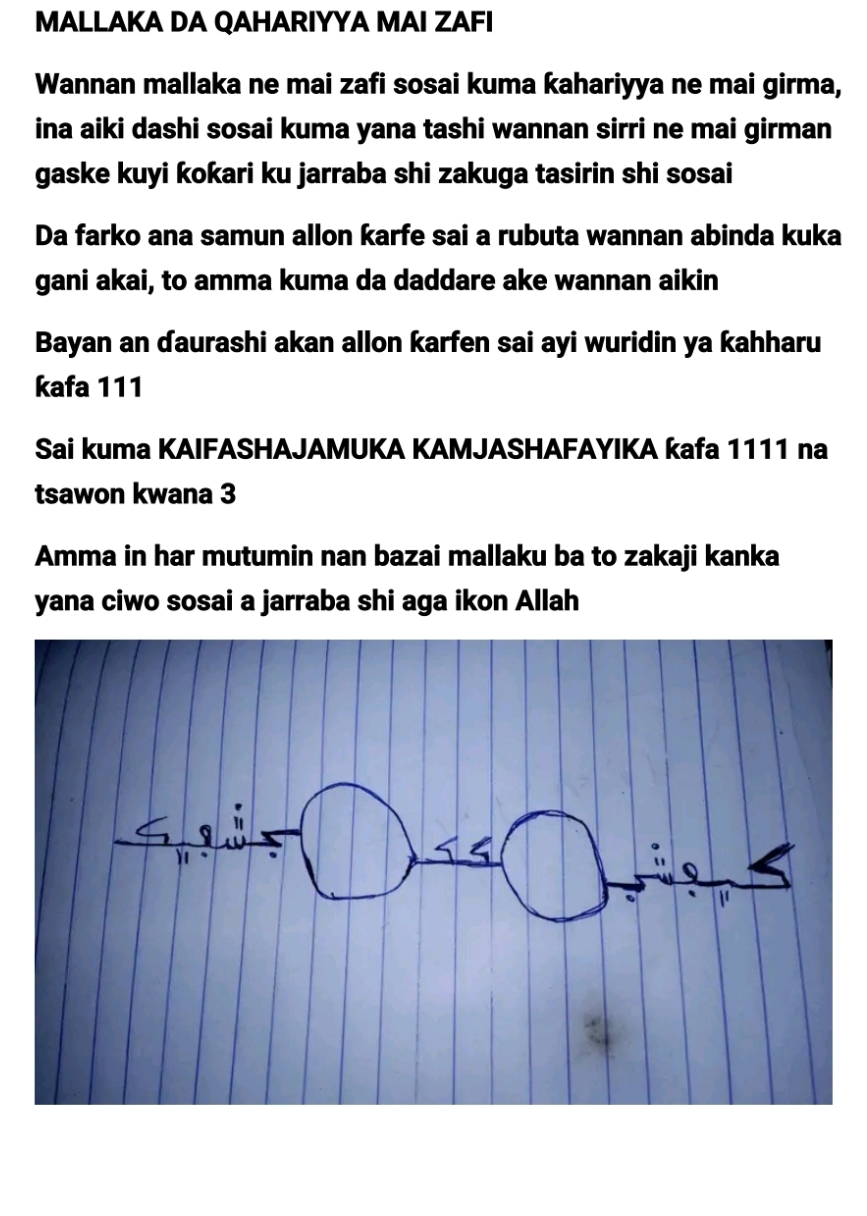 MALLAKA DA QAHARIYYA MAI ZAFI
Wannan mallaka ne mai zafi sosai kuma ƙahariyya ne mai girma,
ina aiki dashi sosai kuma yana tashi wannan sirri ne mai girman
gaske kuyi ƙoƙari ku jarraba shi zakuga tasirin shi sosai
Da farko ana samun allon ƙarfe sai a rubuta wannan abinda kuka
gani akai, to amma kuma da daddare ake wannan aikin
Bayan an ɗaurashi akan allon ƙarfen sai ayi wuridin ya ƙahharu
ƙafa 111
Sai kuma KAIFASHAJAMUKA KAMJASHAFAYIKA ƙafa 1111 na
tsawon kwana 3
Amma in har mutumin nan bazai mallaku ba to zakaji kanka
yana ciwo sosai a jarraba shi aga ikon Allah